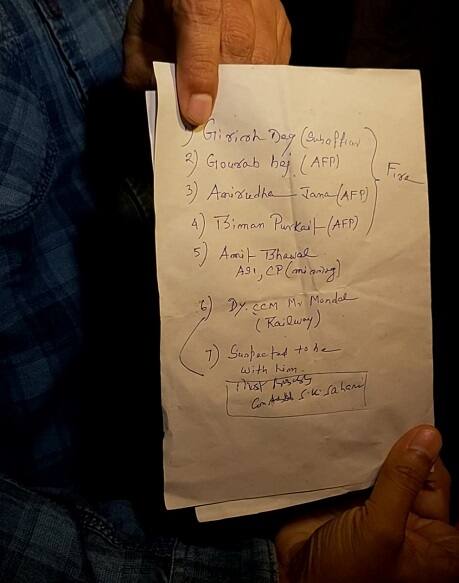 1) Girish Dey (Suboffier)
2) Gourab bej. (AFP)
3) Anirudha Jana (AFP)
4) Biman Purkait (AFP)
Fire
5) Amit Bhawal
ASI, CP (missing)
6) Dy. CCM Mr Mondal
(Railway)
7) Suspected to be
with him.
S.K. Sahani